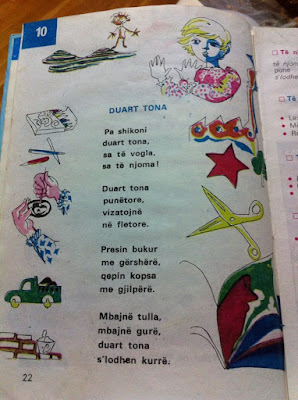 10
DUART TONA
Pa shikoni
duart tona,
sa të vogla,
sa të njoma!
Duart tona
punëtore,
vizatojnë
në fletore.
Presin bukur
me gërshërë,
qepin kopsa
me gjilpërë.
Mbajnë tulla,
mbajnë gurë,
duart tona
s'lodhen kurrë.
22
Të n
të njon
pune
s'lodhe